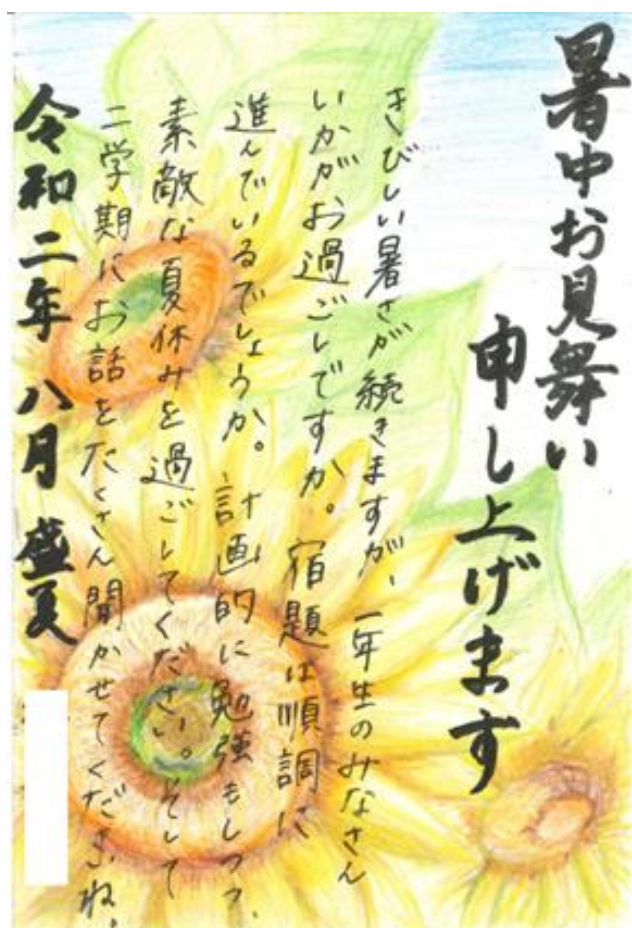 暑中お見舞い
申し上げます
きびしい暑さが続きますが、一年生のみなさん
いかがお過ごしですか。宿題は順調に
進んでいるでしょうか。計画的に勉強もしつつ、
素敵な夏休みを過ごしてください。そして
二学期にお話をたくさん聞かせてくださいね。
令和二年 八月 盛夏